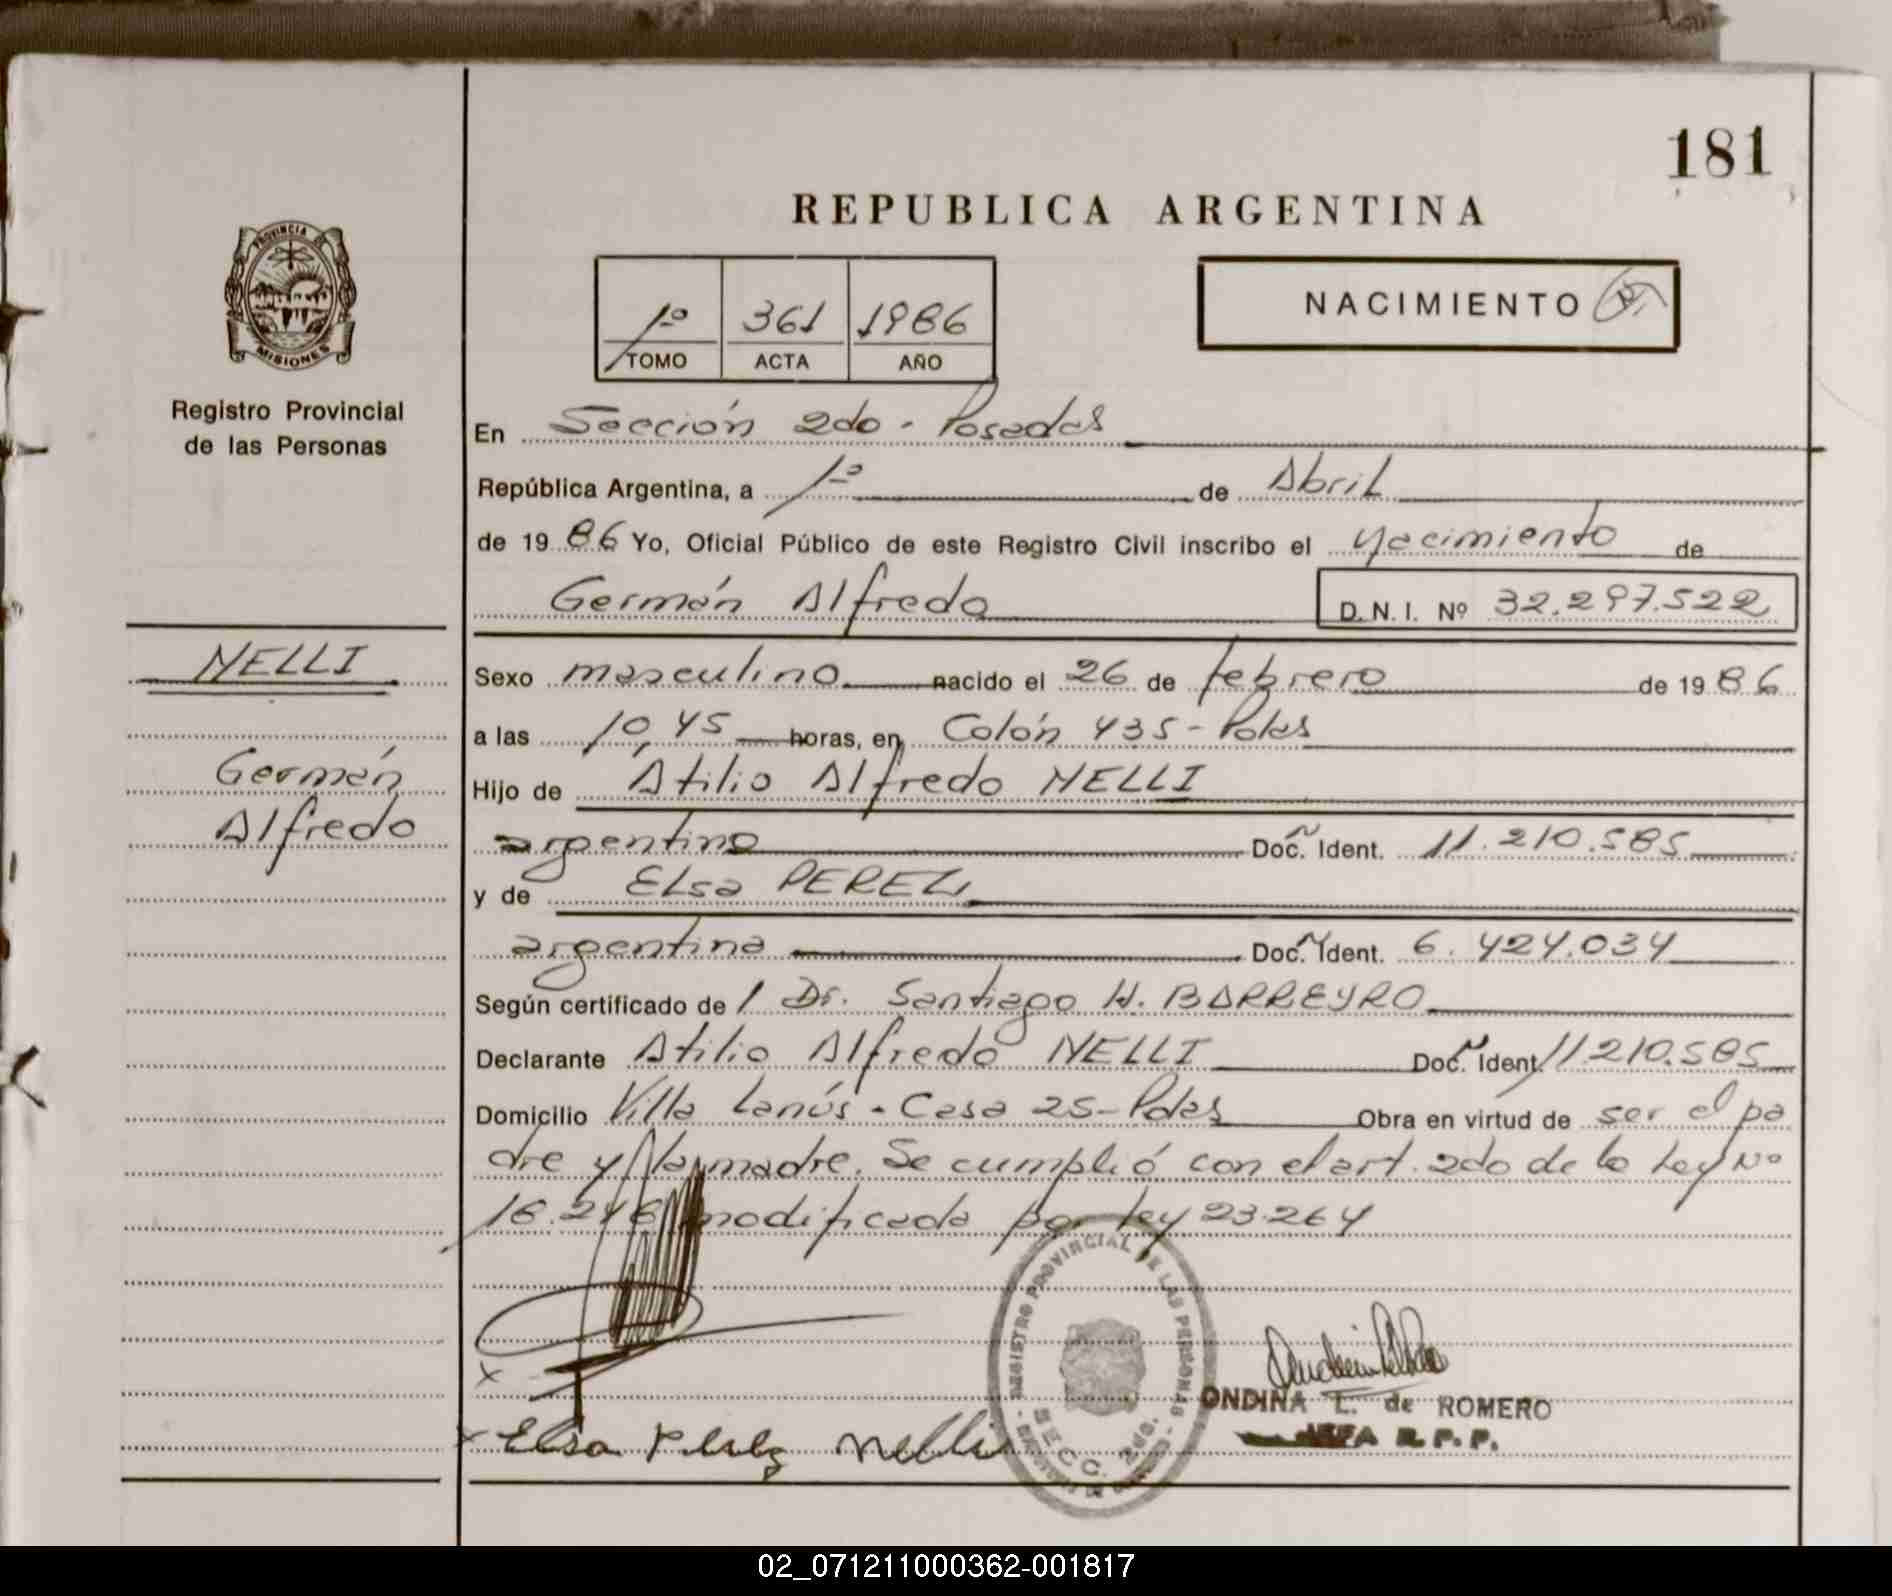 181
REPUBLICA ARGENTINA
PROVINCIA DE
MISIONES
1º 361 1986
TOMO ACTA AÑO
NACIMIENTO
Registro Provincial
de las Personas
En Sección 2do - Posadas
República Argentina, a 1º de Abril
de 1986 Yo, Oficial Público de este Registro Civil inscribo el Nacimiento de
Germán Alfredo D.N.I. Nº 32.297.522
NELLI
Germán
Alfredo
Sexo masculino nacido el 26 de febrero de 1986
a las 10,45 horas, en Colón 435 - Pdas
Hijo de Atilio Alfredo NELLI
argentino Doc. Ident. 11.210.585
y de Elsa PEREZ
argentina Doc. Ident. 6.424.034
Según certificado de l Dr. Santiago H. BARREYRO
Declarante Atilio Alfredo NELLI Doc. Ident. 11.210.585
Domicilio Villa Lanús - Casa 25 - Pdas Obra en virtud de ser el pa
dre y la madre. Se cumplió con el art. 2do de la Ley Nº
18.248 modificada por ley 23.264
REGISTRO PROVINCIAL DE LAS PERSONAS
SECC. 2da.
x
ONDINA L. de ROMERO
JEFA R. P. P.
x Elsa Perez Nelli
02_071211000362-001817